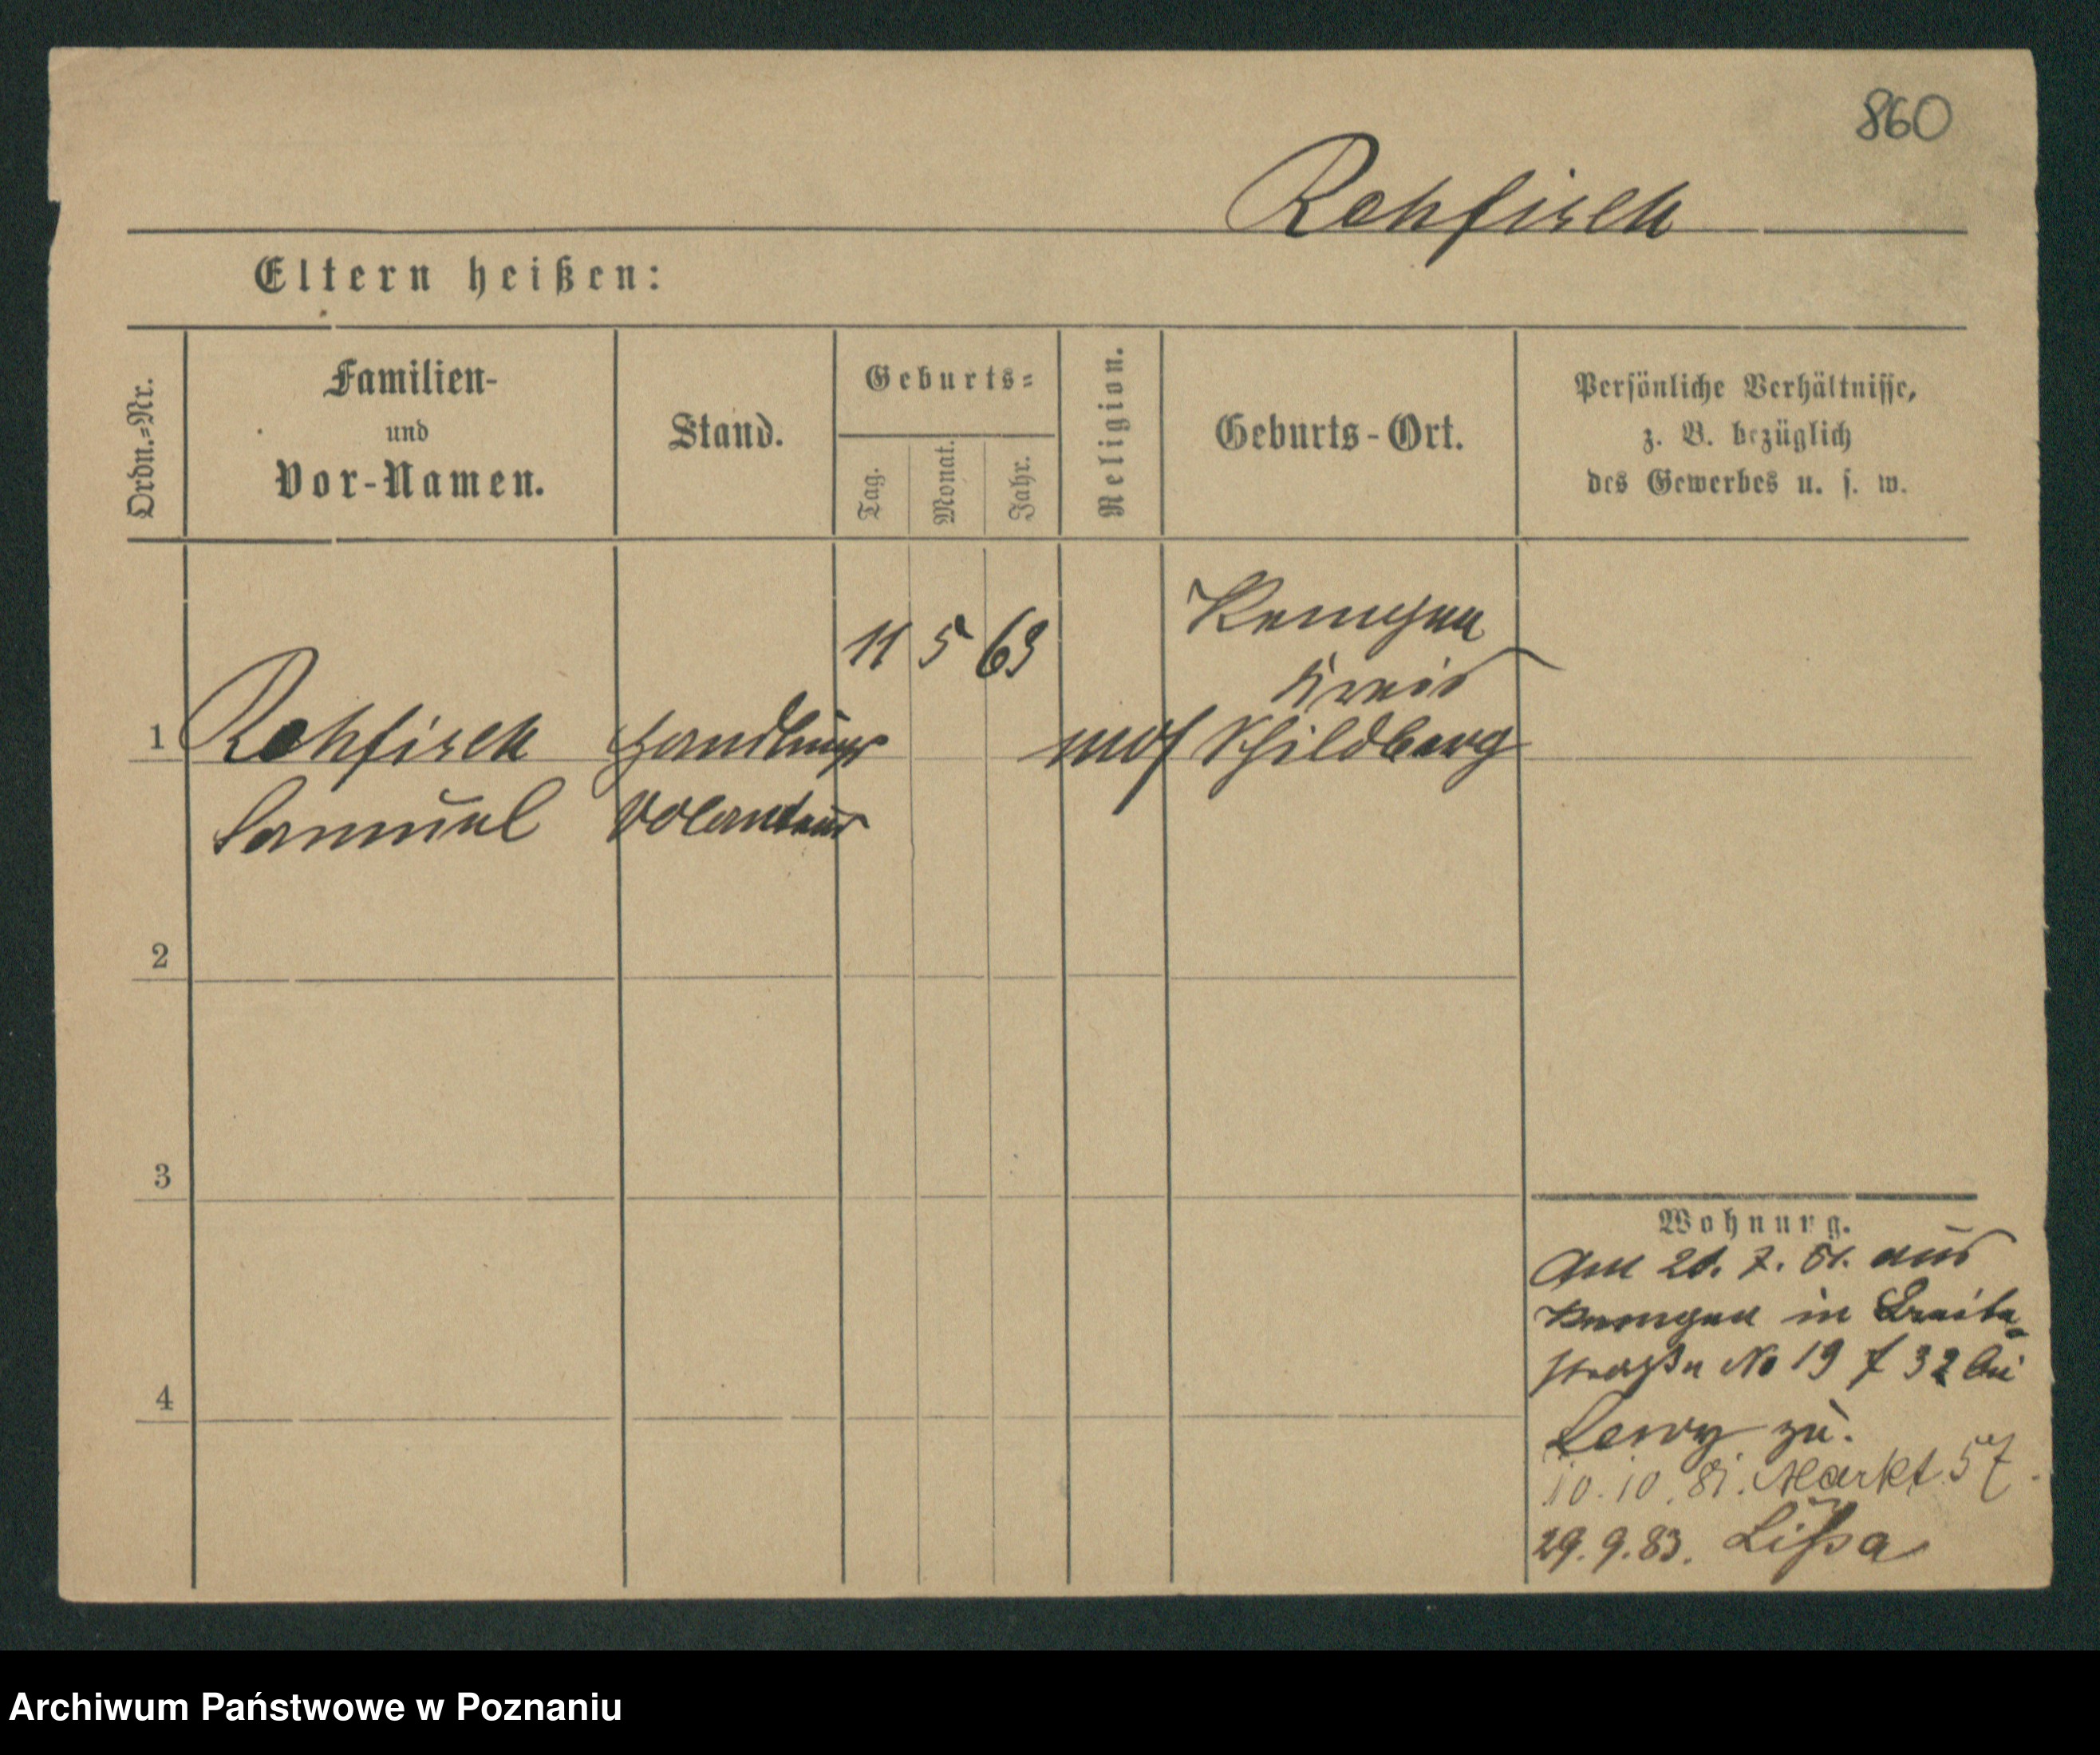 860
Rehfisch
Eltern heißen:
Ordn.=Nr.
Familien-
und
Vor-Namen.
Stand.
Geburts=
Tag.
Monat.
Jahr.
Religion.
Geburts-Ort.
Persönliche Verhältnisse,
z. B. bezüglich
des Gewerbes u. s. w.
1
Rehfisch
Samuel
Handlungs
Volontair
11 5 63
mos
Kempen
Kreis
Schildberg
2
3
4
Wohnung.
Am 21. 7. 81. aus
Kempen in Breite
straße No 19 f 32 bei
Lewy zu.
10. 10. 81. Markt 57.
29. 9. 83. Lissa
Archiwum Państwowe w Poznaniu